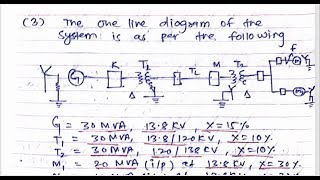 (3) The one line diagram of the
system is as per the following
G1 K T1 TL M T2 f
Δ Δ
G = 30 MVA, 13.8 KV, X = 15%
T1 = 30 MVA, 13.8/120 KV, X = 10%
T2 = 30 MVA, 120/138 KV, X = 10%
M1 = 20 MVA (i/p) at 13.8 KV, X = 30%